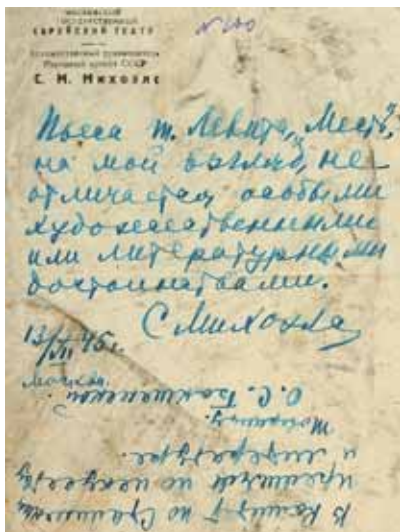 МОСКОВСКИЙ
ГОСУДАРСТВЕННЫЙ
ЕВРЕЙСКИЙ ТЕАТР
Художественный руководитель
Народный артист СССР
С. М. Михоэлс
Пьеса т. Левита „Месть",
на мой взгляд, не
отличается особыми
художественными
или литературными
достоинствами.
С Михоэлс
13/XII 45 г.
Москва.
В Комитет по Сталинским
премиям по искусству
и литературе.
Товарищу
О. С. Бокшанской.